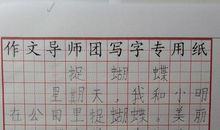 作文导师团写字专用纸
捉蝴蝶
星期天，我和小明
在公园里捉蝴蝶。美丽